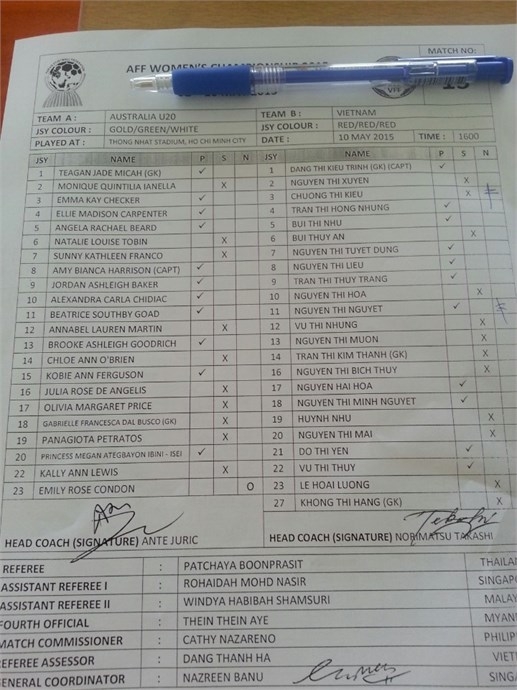 MATCH NO:
AFF WOMEN'S CHAMPIONSHIP
15
VFF
TEAM A : AUSTRALIA U20 TEAM B : VIETNAM
JSY COLOUR : GOLD/GREEN/WHITE JSY COLOUR : RED/RED/RED
PLAYED AT : THONG NHAT STADIUM, HO CHI MINH CITY DATE : 10 MAY 2015 TIME : 1600
JSY NAME P S N JSY NAME P S N
1 TEAGAN JADE MICAH (GK) ✓ 1 DANG THI KIEU TRINH (GK) (CAPT) ✓
2 MONIQUE QUINTILIA IANELLA X 2 NGUYEN THI XUYEN X
3 EMMA KAY CHECKER ✓ 3 CHUONG THI KIEU X
4 ELLIE MADISON CARPENTER ✓ 4 TRAN THI HONG NHUNG ✓
5 ANGELA RACHAEL BEARD ✓ 5 BUI THI NHU ✓
6 NATALIE LOUISE TOBIN X 6 BUI THUY AN X
7 SUNNY KATHLEEN FRANCO X 7 NGUYEN THI TUYET DUNG ✓
8 AMY BIANCA HARRISON (CAPT) ✓ 8 NGUYEN THI LIEU ✓
9 JORDAN ASHLEIGH BAKER ✓ 9 TRAN THI THUY TRANG ✓
10 ALEXANDRA CARLA CHIDIAC ✓ 10 NGUYEN THI HOA X
11 BEATRICE SOUTHBY GOAD ✓ 11 NGUYEN THI NGUYET ✓
12 ANNABEL LAUREN MARTIN X 12 VU THI NHUNG X
13 BROOKE ASHLEIGH GOODRICH ✓ 13 NGUYEN THI MUON X
14 CHLOE ANN O'BRIEN X 14 TRAN THI KIM THANH (GK) X
15 KOBIE ANN FERGUSON ✓ 16 NGUYEN THI BICH THUY X
16 JULIA ROSE DE ANGELIS X 17 NGUYEN HAI HOA ✓
17 OLIVIA MARGARET PRICE X 18 NGUYEN THI MINH NGUYET ✓
18 GABRIELLE FRANCESCA DAL BUSCO (GK) X 19 HUYNH NHU X
19 PANAGIOTA PETRATOS X 20 NGUYEN THI MAI X
20 PRINCESS MEGAN ATEGBAYON IBINI - ISEI ✓ 21 DO THI YEN ✓
22 KALLY ANN LEWIS X 22 VU THI THUY ✓
23 EMILY ROSE CONDON O 23 LE HOAI LUONG X
27 KHONG THI HANG (GK) X
HEAD COACH (SIGNATURE) ANTE JURIC HEAD COACH (SIGNATURE) NORIMATSU TAKASHI
REFEREE : PATCHAYA BOONPRASIT THAILAN
ASSISTANT REFEREE I : ROHAIDAH MOHD NASIR SINGAPO
ASSISTANT REFEREE II : WINDYA HABIBAH SHAMSURI MALAY
FOURTH OFFICIAL : THEIN THEIN AYE MYANM
MATCH COMMISSIONER : CATHY NAZARENO PHILIPP
REFEREE ASSESSOR : DANG THANH HA VIET
GENERAL COORDINATOR : NAZREEN BANU SINGA